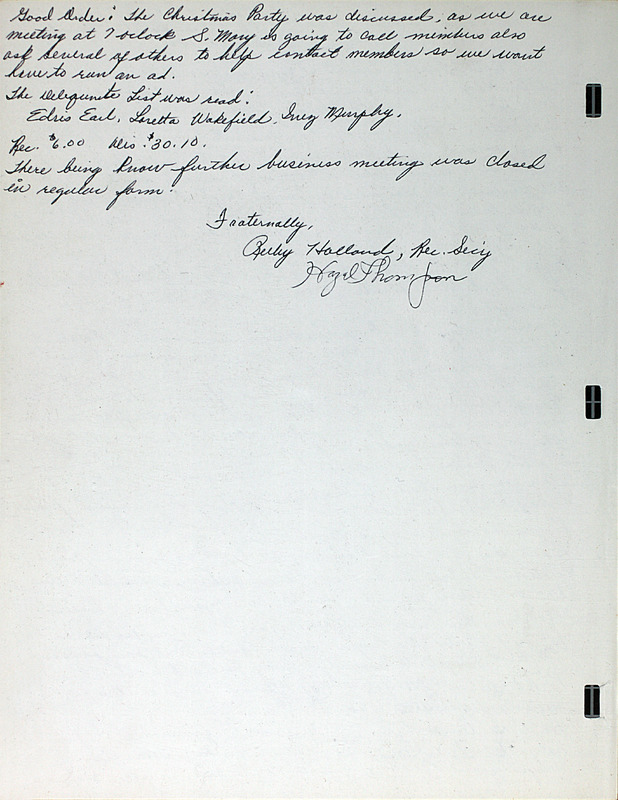 Good Order: The Christmas Party was discussed, as we are
meeting at 7 oclock S. Mary is going to call members also
ask several of others to help contact members so we want
have to run an ad.
The Delequints List was read:
Edris Earl, Loretta Wakefield, Inez Murphy.
Rec. $6.00 Dis. $30.10.
There being know further business meeting was closed
in regular form:
Fraternally,
Ruby Holland, Rec. Sec'y
Hazel Thompson